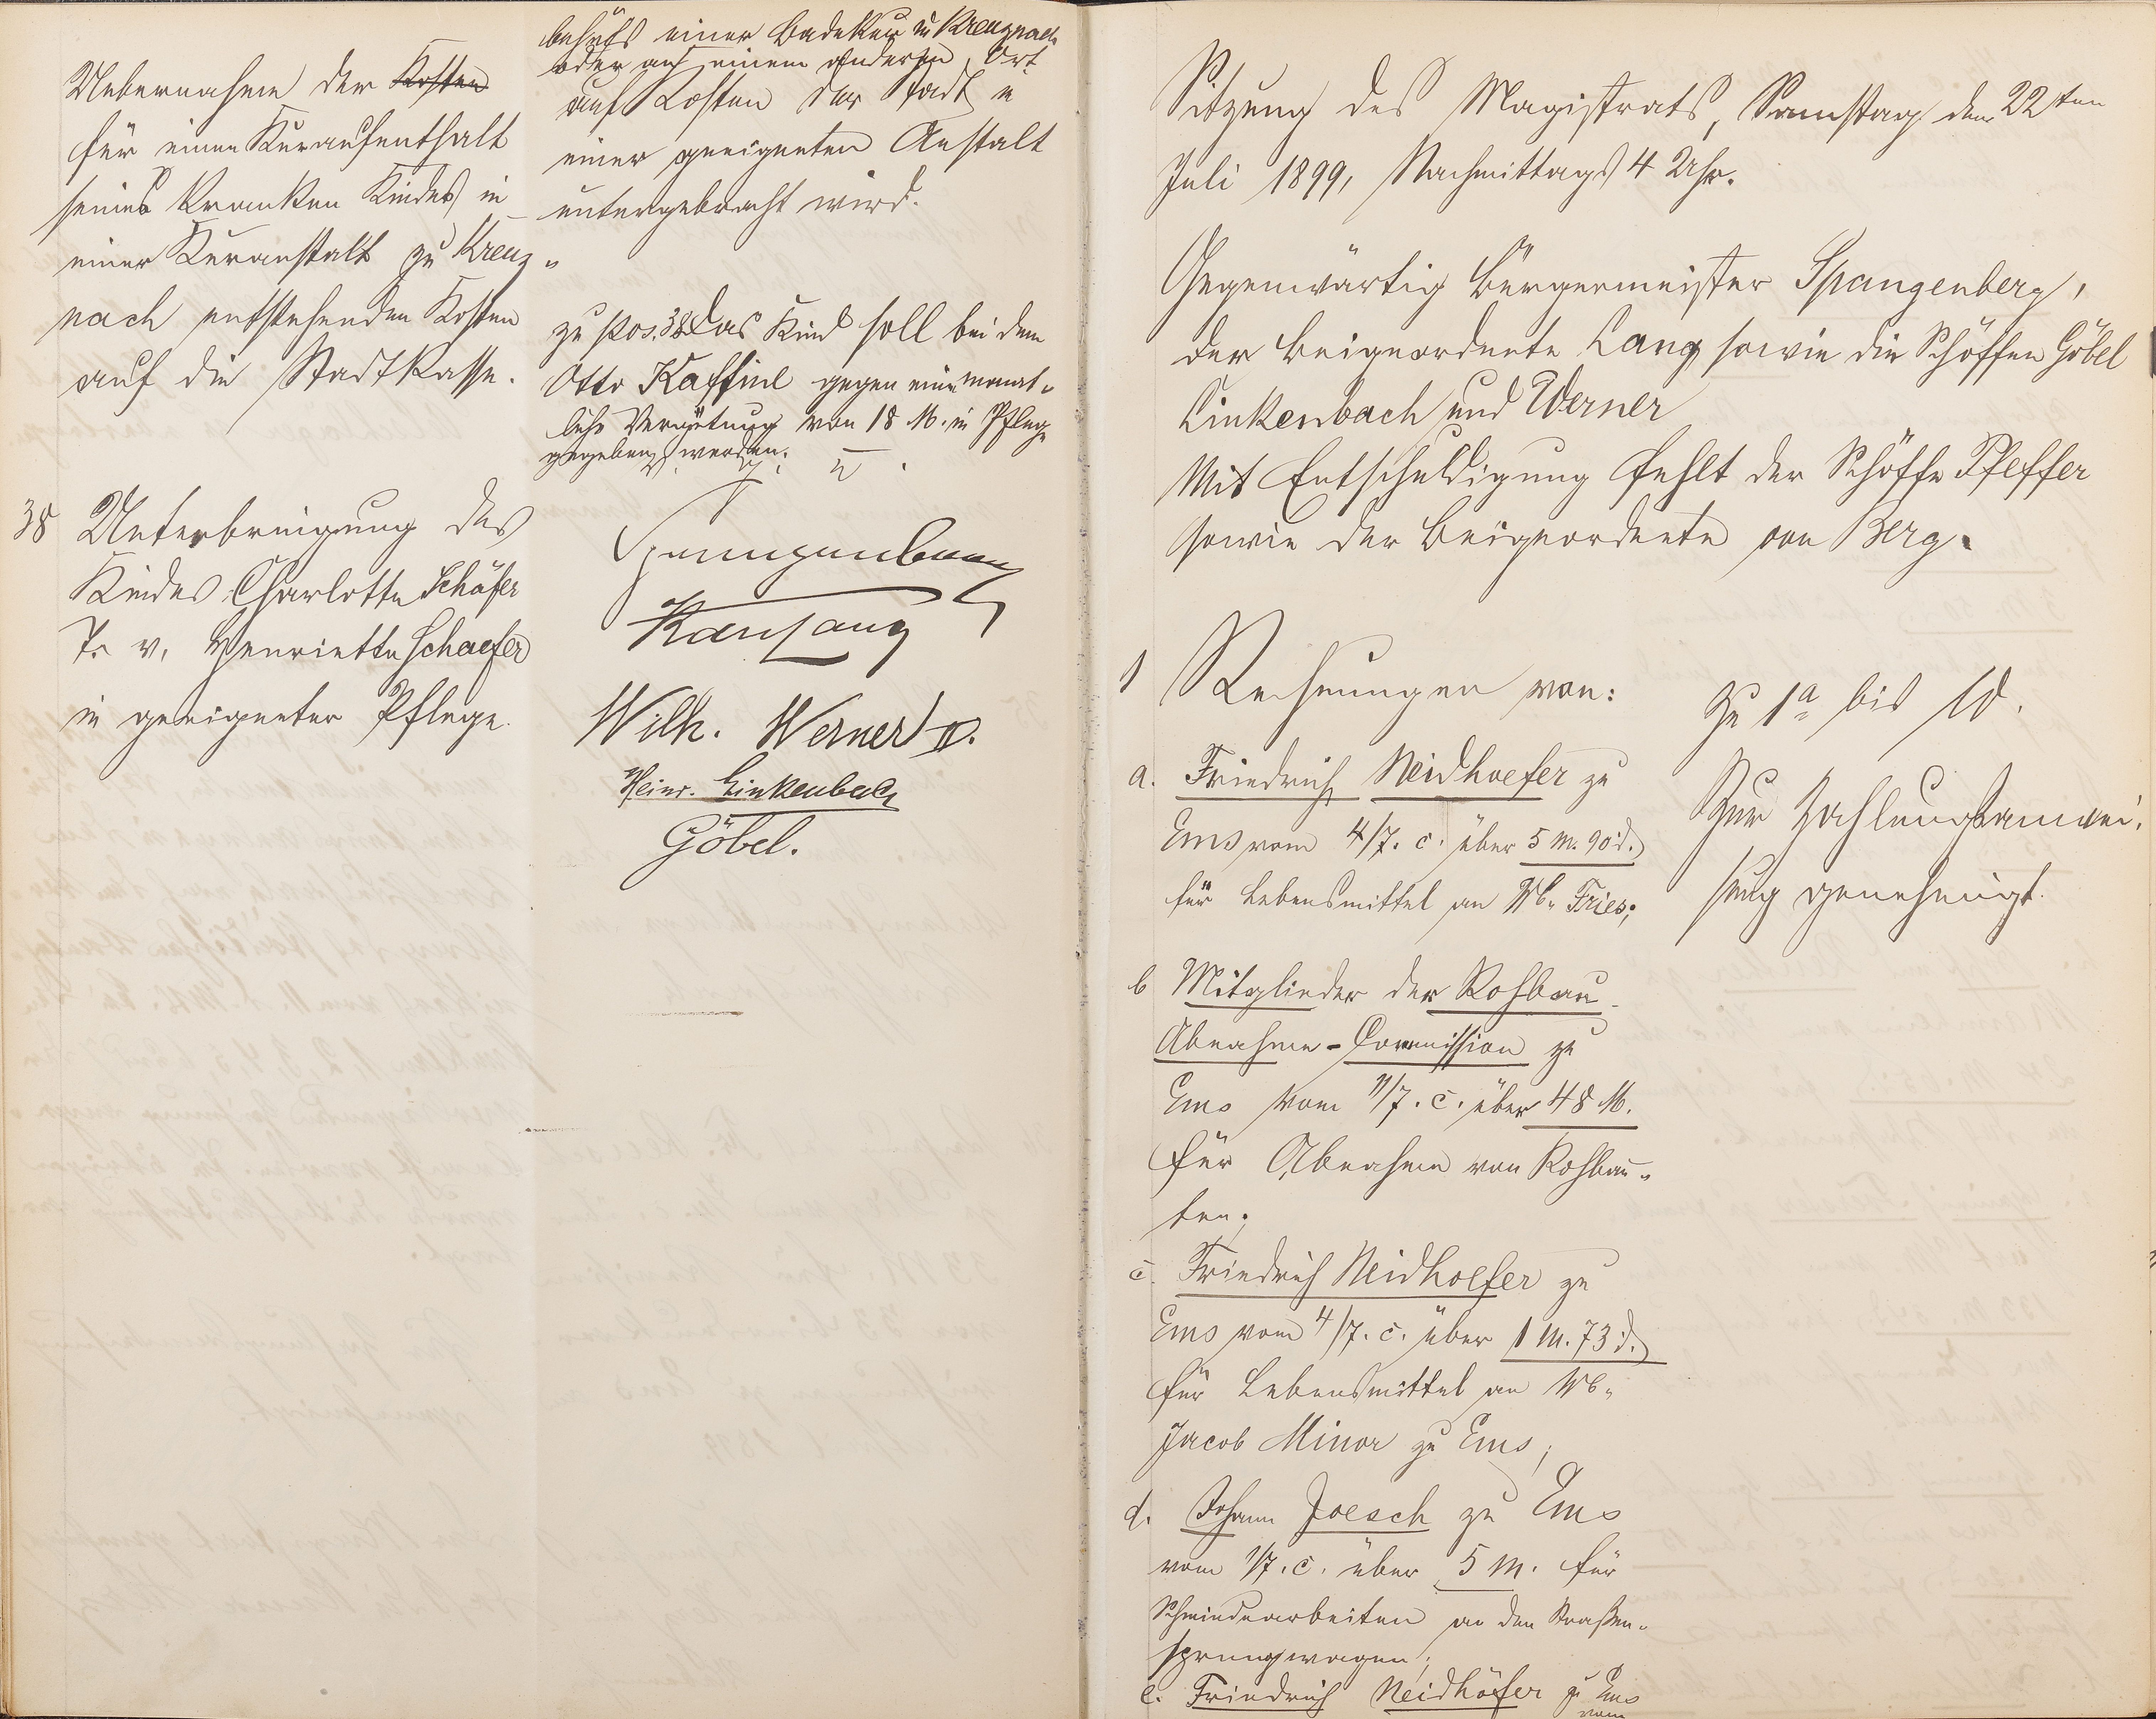 Uebernahme der Kosten
für einen Kuraufenthalt
seines kranken Kindes in
einer Kuranstalt zu Kreuz-
nach entstehenden Kosten
auf die Stadtkasse.
38 Unterbringung des
Kindes Charlotte Schäfer
T. v. Henriette Schaefer
in geeigneter Pflege.
behufs einer Badekur in Kreuznach
oder auf einem anderen Ort
auf Kosten der Stadt in
einer geeigneten Anstalt
untergebracht wird.
zu pos. 38 Das Kind soll bei dem
Otto Kaffine gegen eine monat-
liche Vergütung von 18 M. in Pflege
gegeben werden.
Spangenberg
Karl Lang
Wilh. Werner II.
Heinr. Linkenbach
Göbel.
Sitzung des Magistrats, Samstag den 22ten
Juli 1899, Nachmittags 4 Uhr.
Gegenwärtig Bürgermeister Spangenberg,
der Beigeordnete Lang sowie die Schöffen Göbel
Linkenbach und Werner
Mit Entschuldigung fehlt der Schöffe Pfeffer
sowie der Beigeordnete von Berg.
1 Rechnungen von:
a. Friedrich Neidhoefer zu
Ems vom 4/7. c. über 5 M. 90 d.
für Lebensmittel an Wb. Fries;
b Mitglieder der Rohbau-
Abnahme-Commission zu
Ems vom 11/7. c. über 48 M.
für Abnahme von Rohbau-
ten;
c. Friedrich Neidhoefer zu
Ems vom 4/7. c. über 1 M. 73 d.
für Lebensmittel an Wb.
Jacob Minor zu Ems;
d. Johann Joesch zu Ems
vom 1/7. c. über 5 M. für
Schmiedearbeiten an den Straßen-
sprengwagen;
e. Friedrich Neidhöfer zu Ems
vom
Zu 1a bis 1d.
Zur Zahlungsanwei-
sung genehmigt.